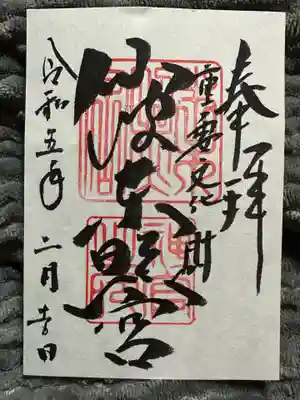 奉拝
重要文化財
仙波東照宮
令和五年二月吉日